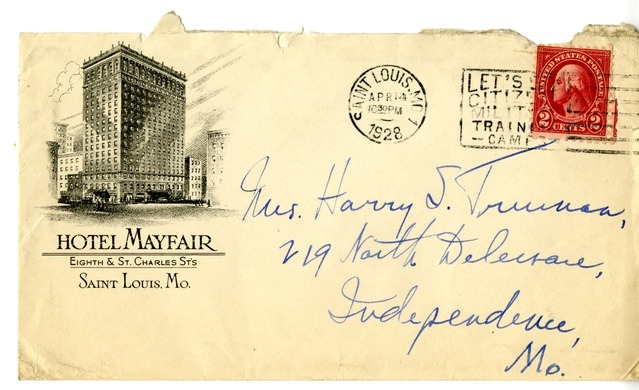 HOTEL MAYFAIR
EIGHTH & ST. CHARLES ST'S
SAINT LOUIS, MO.
SAINT LOUIS, MO. 1
APR 14
10 30 PM
1928
LET'S
CITIZE
MILIT
TRAIN
CAMP
UNITED STATES POSTAGE
2 CENTS 2
Mrs. Harry S. Truman,
219 North Delaware,
Independence,
Mo.